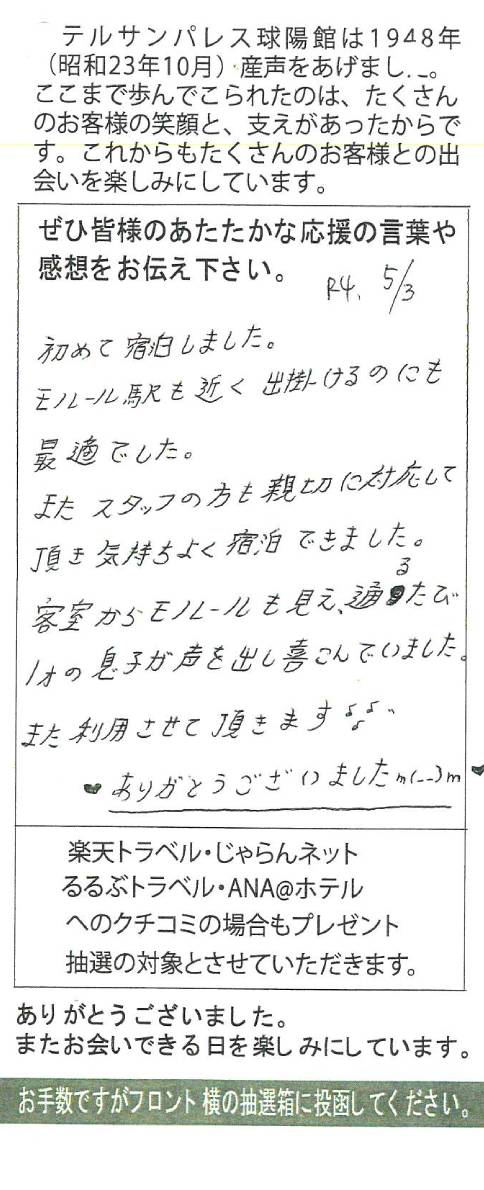 テルサンパレス球陽館は1948年
（昭和23年10月）産声をあげまし…。
ここまで歩んでこられたのは、たくさん
のお客様の笑顔と、支えがあったからで
す。これからもたくさんのお客様との出
会いを楽しみにしています。
ぜひ皆様のあたたかな応援の言葉や
感想をお伝え下さい。
R4. 5/3
初めて宿泊しました。
モノレール駅も近く出掛けるのにも
最適でした。
また スタッフの方も親切に対応して
頂き気持ちよく宿泊できました。
客室からモノレールも見え、通るたび
1才の息子が声を出し喜こんでいました。
また利用させて頂きます♪♪♪
♥ありがとうございましたm(__)m♥
楽天トラベル・じゃらんネット
るるぶトラベル・ANA@ホテル
へのクチコミの場合もプレゼント
抽選の対象とさせていただきます。
ありがとうございました。
またお会いできる日を楽しみにしています。
お手数ですがフロント横の抽選箱に投函してください。